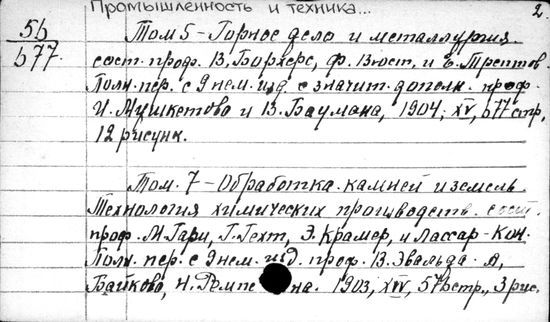 Промышленность и техника... 2.
5б
577.
Том 5 – Горное дело и металлургия.
сост. проф. В. Борхерс, ф. Вюст, и Е. Трептов
Полн. пер. с 9 нем. изд. с значит. дополн. проф.
И. Мушкетова и В. Баумана, 1904; XV, 577 стр,
12 рисунк.
Том. 7 – Обработка камней и земель
Технология химических производств. сост.
проф. М. Гари, Г. Гехт, Э. Крамер, и Лассар-Кон.
Полн. пер. с 9 нем. изд. проф. В. Эвальда. А,
Байкова, Н. 1903, XIV, стр., 3 рис.